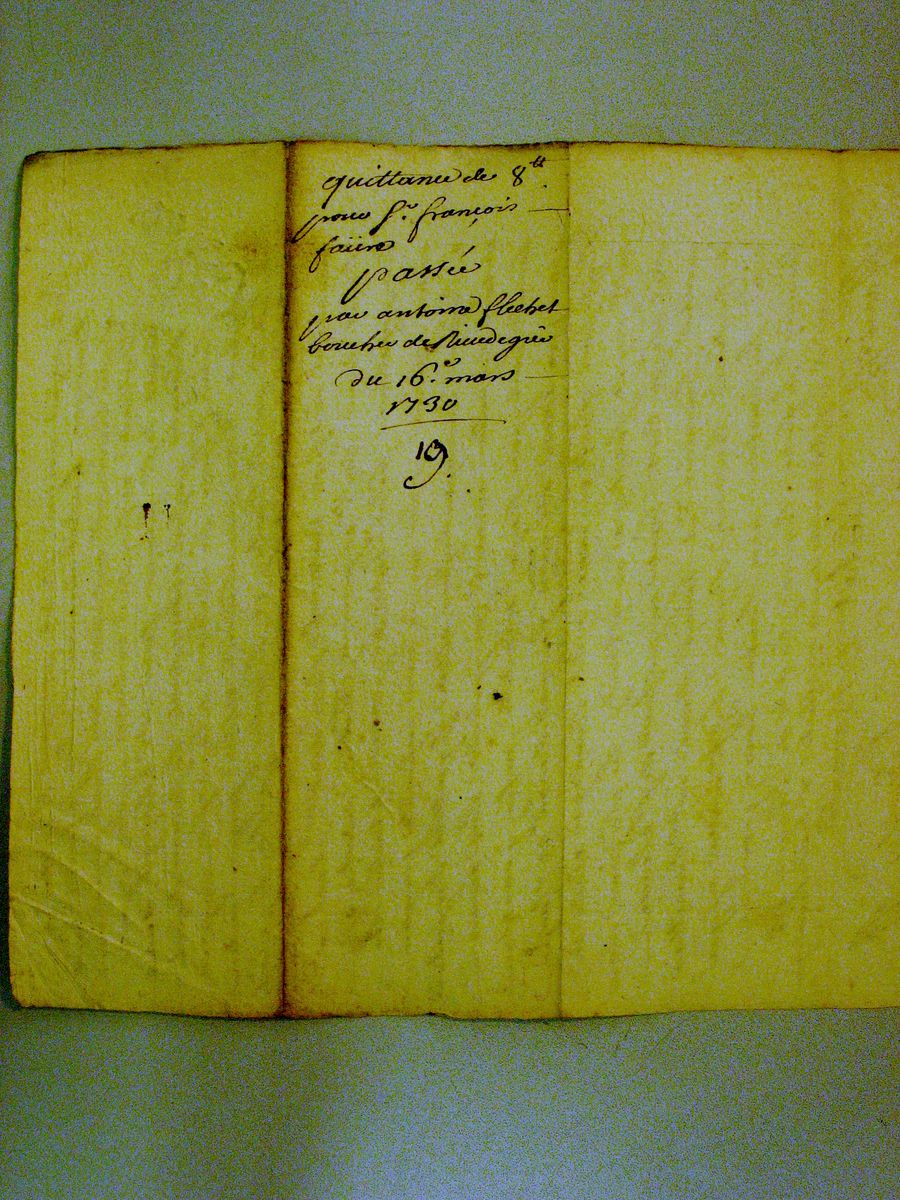 quittance de 8 tt.
pour Sr. françois
faure
passée
par antoine flechet
boucher de Rivedegiès
du 16e. mars
1730
19.